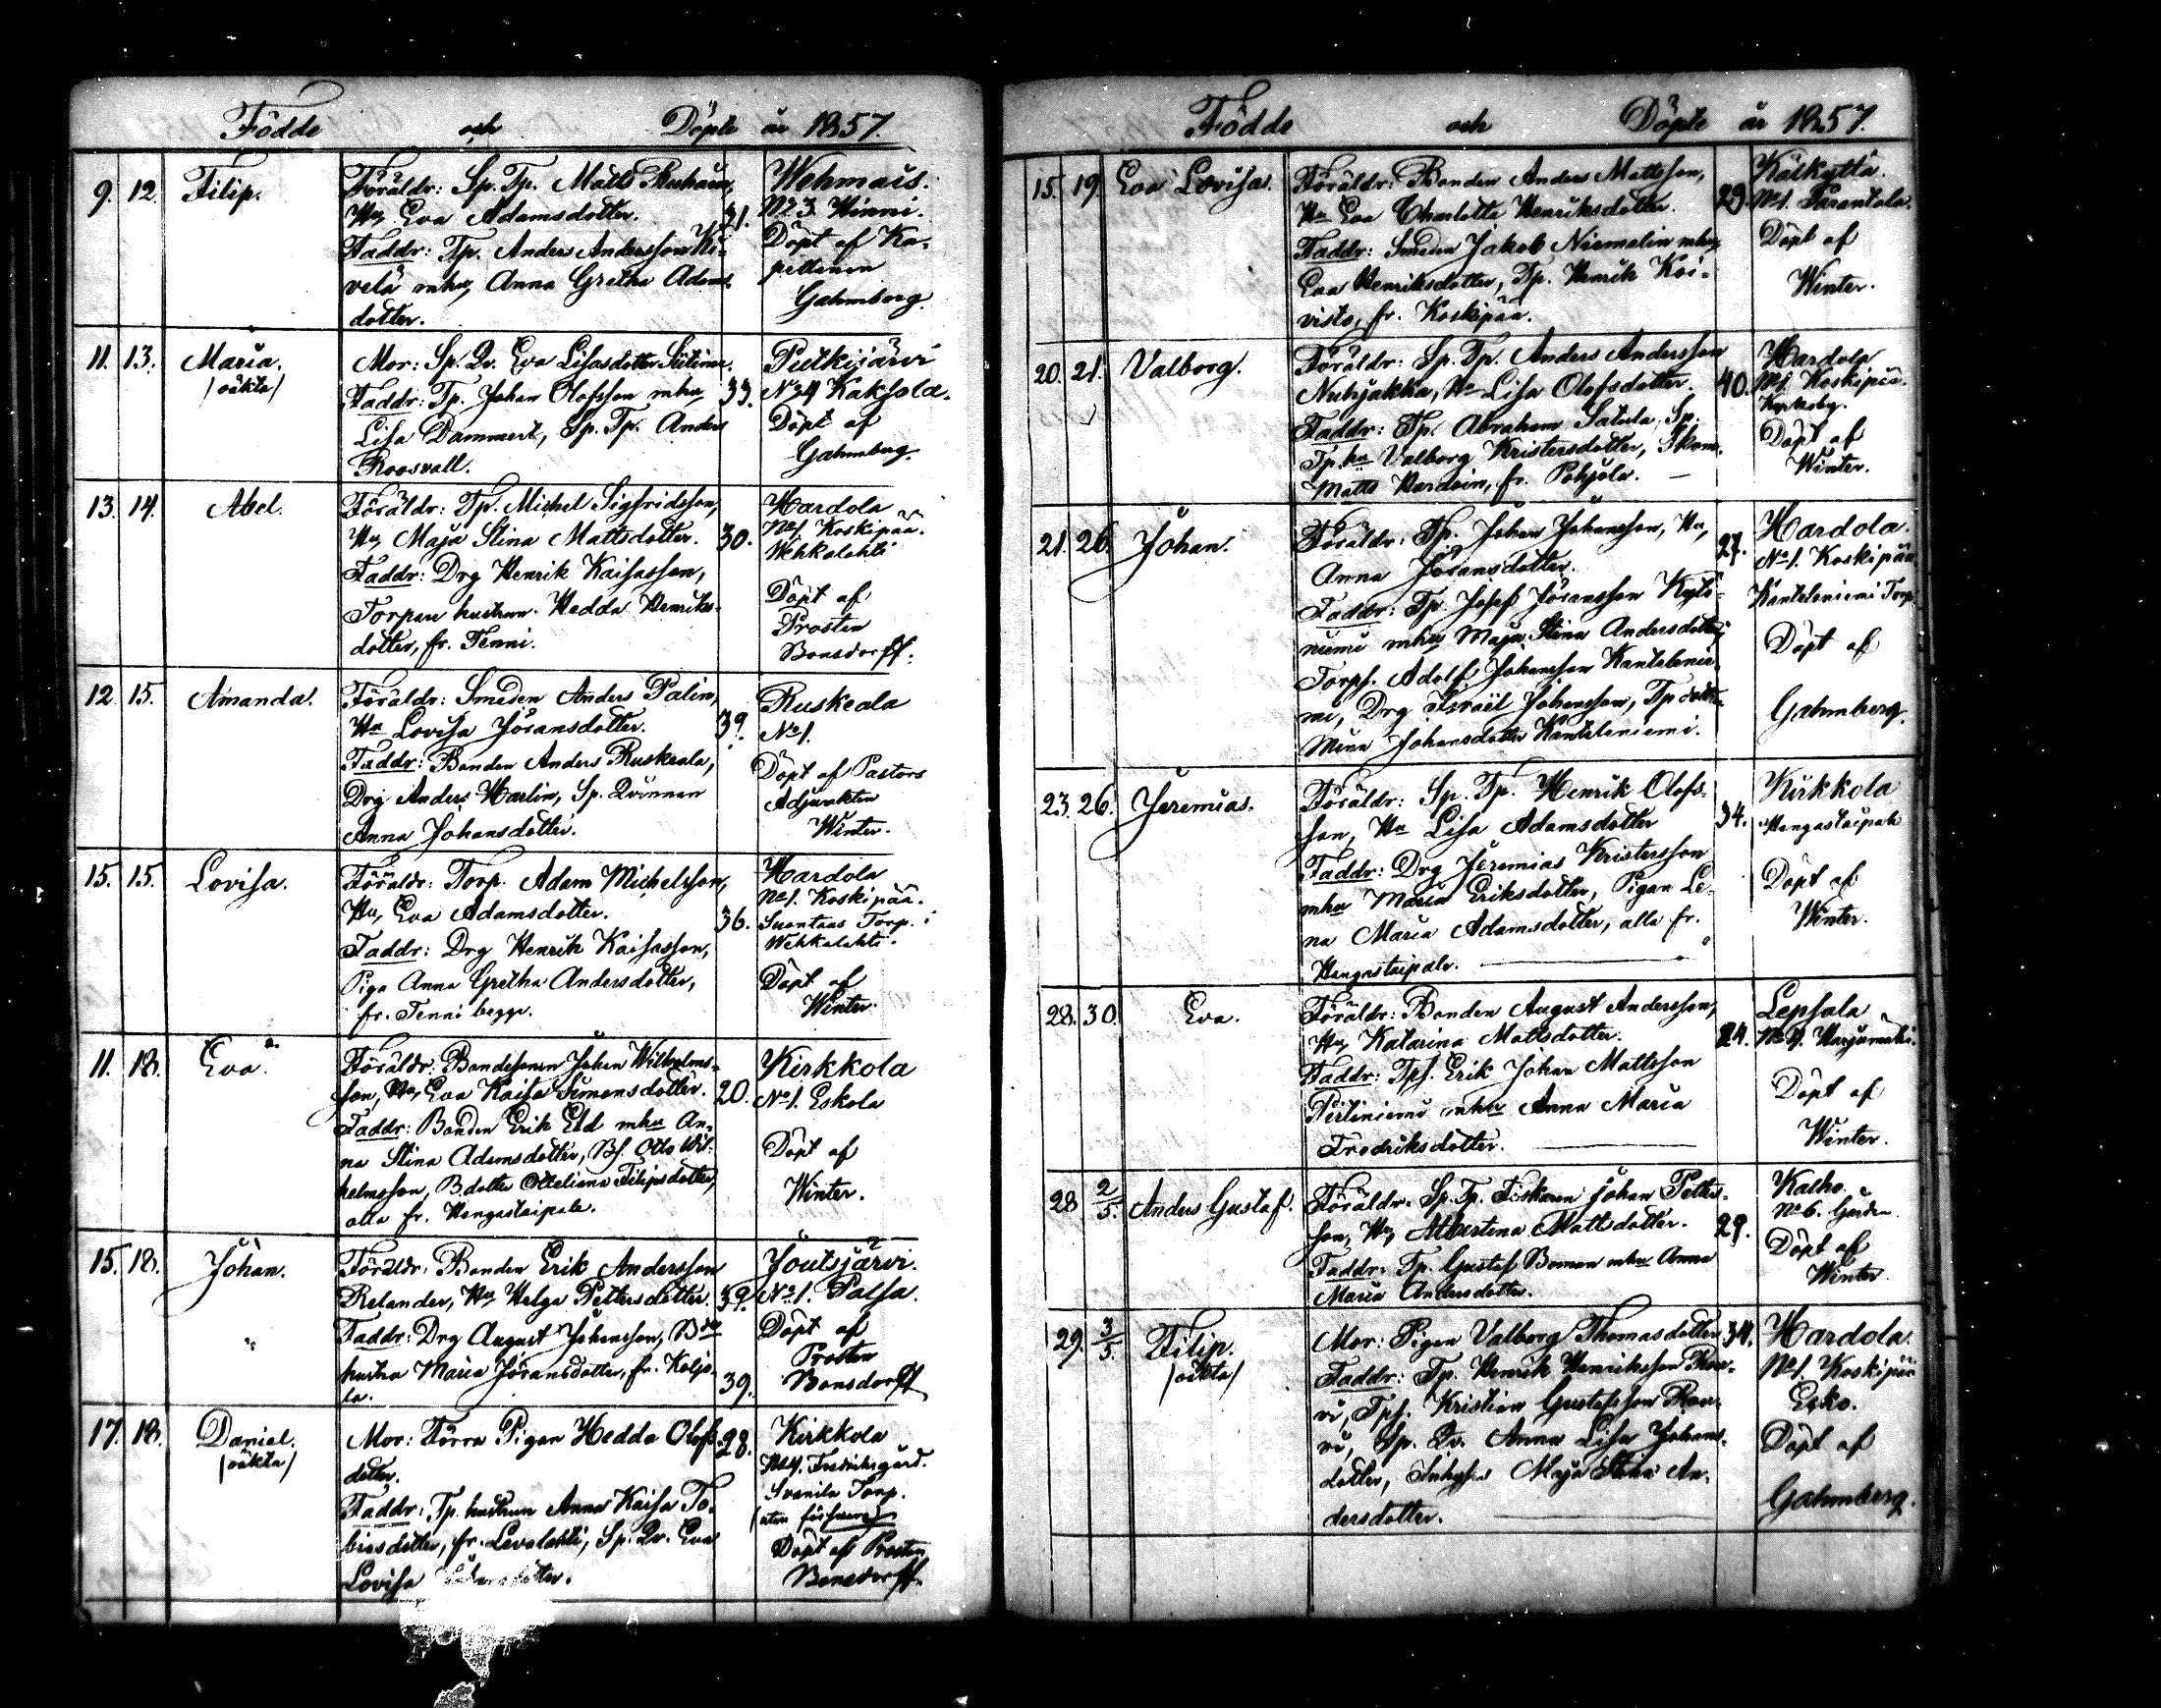 Födde och Döpte år 1857.
9. 12. Filip.
Föräldr: Sp. Tp. Matts
Hu, Eva Adamsdotter. 31.
Faddr: Tp. Anders Andersson Ki-
velä mhu, Anna Gretha Adams-
dotter.
Wehmais.
No 3. Winni.
Döpt af Ka-
pellanen
Gahmberg.
11. 13. Maria.
/oäkta/
Mor: Sp. Qv. Eva Lisasdotter
Faddr: Tp. Johan Olofsson mhu, 33.
Lisa Dammert, Sp. Tp. Anders
Roosvall.
Pulkijärvi
No 4 Kaksola.
Döpt af
Gahmberg.
13. 14. Abel.
Föräldr: Tp. Michel Sigfridsson,
Hu, Maja Stina Mattsdotter. 30.
Faddr: Drg Henrik Kaisasson,
Torpare hustrun Hedda Henriks-
dotter, fr. Tenni.
Hardola
No 1. Koskipää.
Wehkalahti
Döpt af
Prosten
Bonsdorff.
12. 15. Amanda.
Föräldr: Smeden Anders Palin,
Hu Lovisa Jöransdotter. 39.
Faddr: Bonden Anders Ruskeala,
Drg Anders Harlin, Sp. Qvinnan
Anna Johansdotter.
Ruskeala
No 1.
Döpt af Pastors
Adjunkten
Winter.
15. 15. Lovisa.
Föräldr: Torp. Adam Michelsson,
Hu, Eva Adamsdotter. 36.
Faddr: Drg Henrik Kaisasson,
Piga Anna Gretha Andersdotter,
fr. Tenni begge.
Hardola
No 1. Koskipää.
Suontaus Torp. i
Wehkalahti.
Döpt af
Winter.
11. 18. Eva.
Föräldr: Bondesonen Johan Wilhelms-
son, Hu, Eva Kaisa Simonsdotter. 20.
Faddr: Bonden Erik Eld mhu An-
na Stina Adamsdotter, Bs. Otto Wil-
helmsson, B.dotter Otteliana Filipsdotter,
alla fr. Hangastaipale.
Kirkkola
No 1. Eskola
Döpt af
Winter.
15. 18. Johan.
Föräldr: Bonden Erik Andersson
Relander, Hu, Helga Pettersdotter. 39.
Faddr: Drg August Johansson, Bde
hustru Maria Jöransdotter, fr. Koljo-
la. 39.
Joutsjärvi.
No 1. Palsa.
Döpt af
Prosten
Bonsdorff
17. 18. Daniel.
/oäkta/
Mor: Förra Pigan Hedda Olofs- 28.
dotter.
Faddr: Tp. hustrun Anna Kaisa To-
biasdotter, fr. Sp. Qv. Eva
Lovisa
Kirkkola
Fredriksgård.
Svanila Torp.
Döpt af Prosten
Bonsdorff.
Födde och Döpte år 1857.
15. 19. Eva Lovisa.
Föräldr: Bonden Anders Mattsson,
Hu Eva Charlotta Henriksdotter. 29.
Faddr: Smeden Jakob Niemelin mhu,
Eva Henriksdotter, Tp. Henrik Koi-
visto, fr. Koskipää.
Kälkyttä.
No 1. Parantola.
Döpt af
Winter.
20. 21. Valborg.
Föräldr: Sp. Tp. Anders Andersson
Nuhjakka, Hu Lisa Olofsdotter. 40.
Faddr: Tp. Abraham Satula, Sp.
Tp. hu Valborg Kristersdotter, Skom.
Matts Hardoin, fr. Pohjola.
Hardola
No 1. Koskipää.
Döpt af
Winter.
21. 26. Johan.
Föräldr: Tp. Johan Johansson, Hu, 27.
Anna Jöransdotter.
Faddr: Tp. Josef Jöransson Kytö-
niemi mhu Maja Stina Andersdotter,
Torps. Adolf Johansson Kantelenie-
mi, Drg Israël Johansson, Tp dotter
Mina Johansdotter Kanteleniemi.
Hardola.
No 1. Koskipää
Kanteleniemi Torp
Döpt af
Gahmberg.
23. 26. Jeremias.
Föräldr: Sp. Tp. Henrik Olofs-
son, Hu Lisa Adamsdotter 34.
Faddr: Drg Jeremias Kristersson
mhu Maria Eriksdotter, Pigan Le-
na Maria Adamsdotter, alla fr.
Hangastaipale.
Kirkkola
Hangastaipale
Döpt af
Winter.
28. 30. Eva.
Föräldr: Bonden August Andersson,
Hu, Katarina Mattsdotter. 24.
Faddr: Tps. Erik Johan Mattsson
Pirtiniemi mhu Anna Maria
Fredriksdotter.
Lepsala
Harjumäki.
Döpt af
Winter.
28 2/5. Anders Gustaf.
Föräldr: Sp. Tp. Fiskaren Johan Petters-
son, Hu, Albertina Mattsdotter. 29.
Faddr: Tp. Gustaf Boman mhu Anna
Maria Andersdotter.
Kalho.
No 6. Gården.
Döpt af
Winter
29. 3/5. Filip.
/oäkta/
Mor: Pigan Valborg Thomasdotter 34.
Faddr: Tp. Henrik Henriksson Rau-
vi, Tps. Kristian Gustafsson Rau-
vi, Sp. Qv. Anna Lisa Johans-
dotter, Inhyses Maja Stina An-
dersdotter.
Hardola.
No 1. Koskipää
Esko.
Döpt af
Gahmberg.